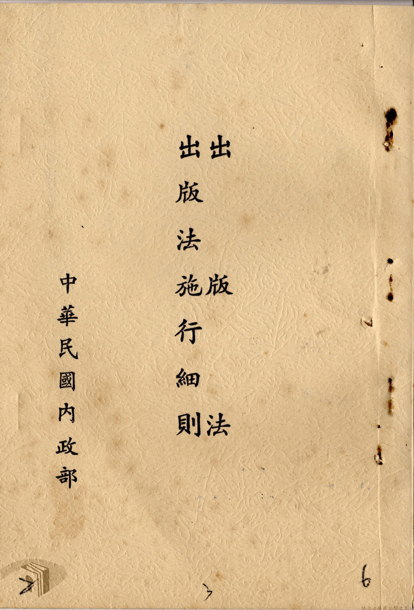 出版法
出版法施行細則
中華民國內政部
6